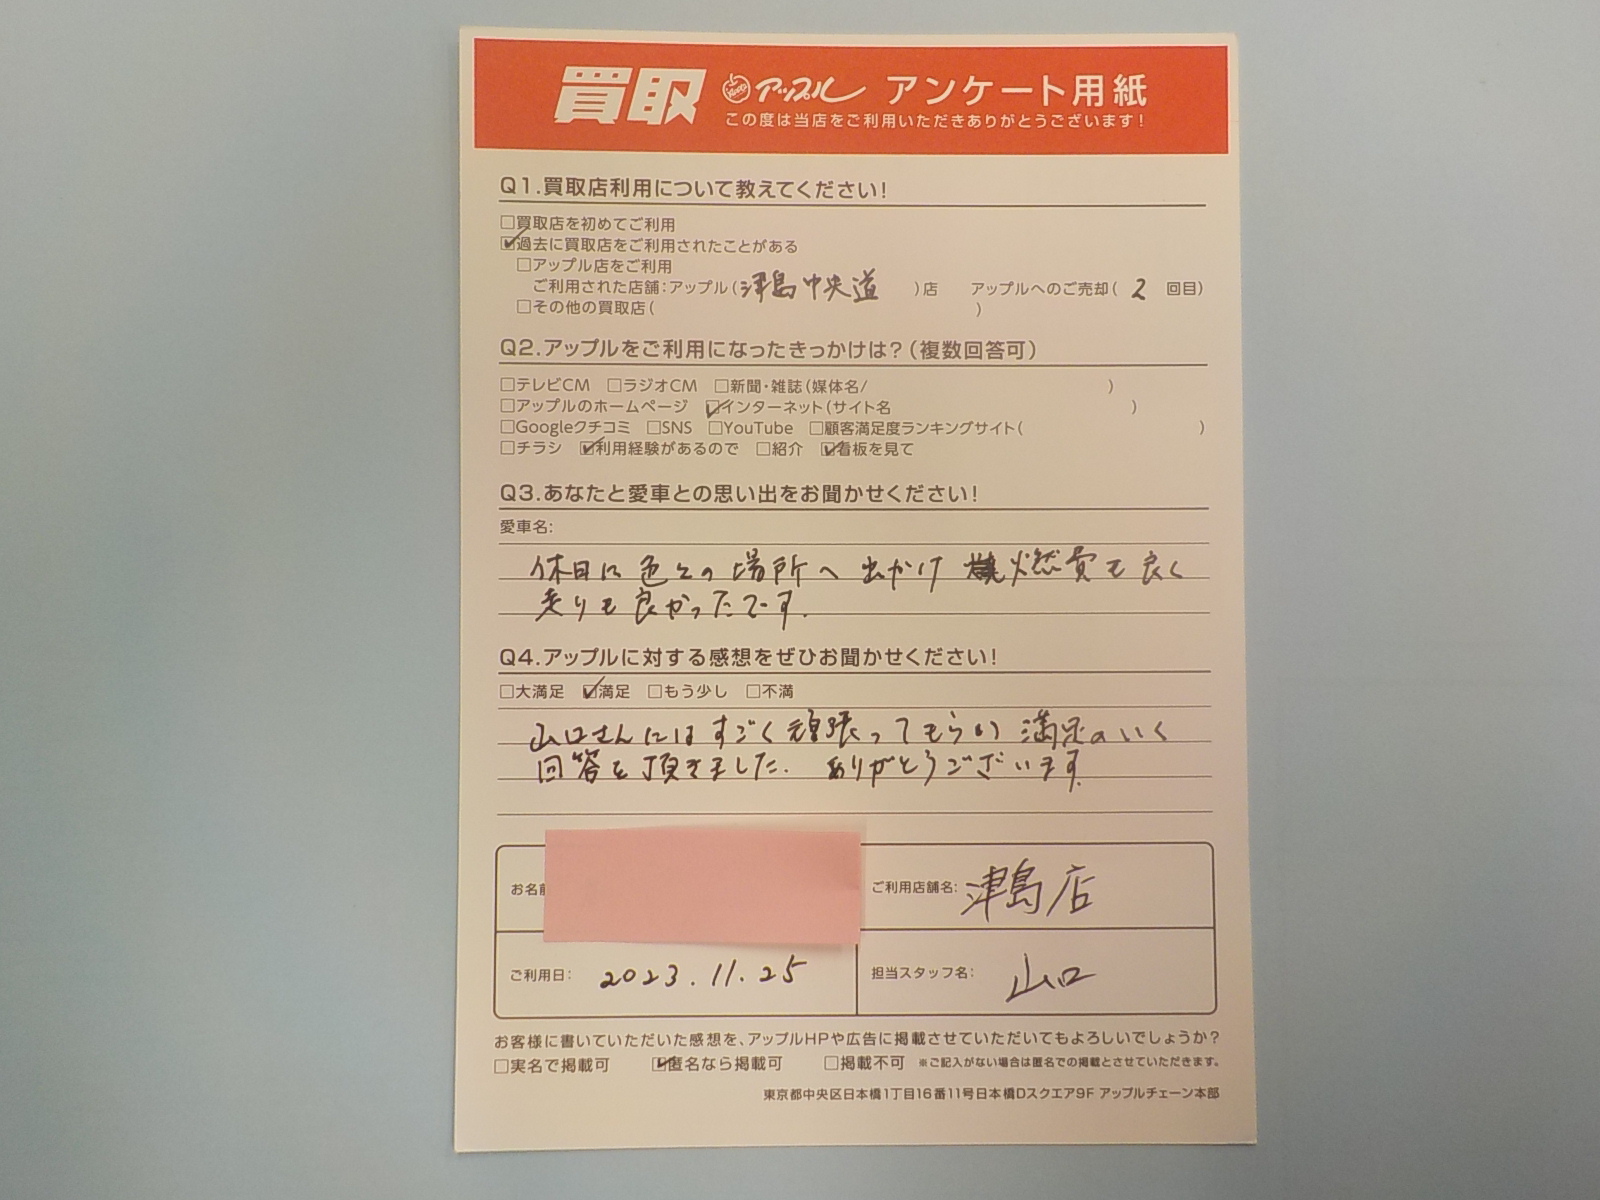 買取 アップル アンケート用紙
この度は当店をご利用いただきありがとうございます!
Q1.買取店利用について教えてください!
□買取店を初めてご利用
☑過去に買取店をご利用されたことがある
□アップル店をご利用
ご利用された店舗:アップル(津島中央道)店 アップルへのご売却(2回目)
□その他の買取店( )
Q2.アップルをご利用になったきっかけは?(複数回答可)
□テレビCM □ラジオCM □新聞・雑誌(媒体名/ )
□アップルのホームページ ☑インターネット(サイト名 )
□Googleクチコミ □SNS □YouTube □顧客満足度ランキングサイト( )
□チラシ ☑利用経験があるので □紹介 ☑看板を見て
Q3.あなたと愛車との思い出をお聞かせください!
愛車名:
休日に色々の場所へ出かけ 燃費も良く
走りも良かったです.
Q4.アップルに対する感想をぜひお聞かせください!
□大満足 ☑満足 □もう少し □不満
山口さんにはすごく頑張ってもらい満足のいく
回答を頂きました. ありがとうございます.
お名前 ご利用店舗名: 津島店
ご利用日: 2023.11.25 担当スタッフ名: 山口
お客様に書いていただいた感想を、アップルHPや広告に掲載させていただいてもよろしいでしょうか?
□実名で掲載可 ☑匿名なら掲載可 □掲載不可 ※ご記入がない場合は匿名での掲載とさせていただきます。
東京都中央区日本橋1丁目16番11号日本橋Dスクエア9F アップルチェーン本部